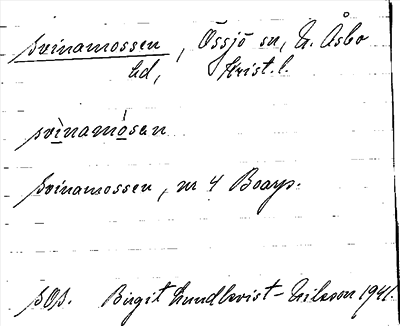 Svinamossen, Össjö sn, N. Åsbo
hd, Krist. l.
svìnamósen
Svinamossen, nr 4 Boarp.
sOs. Birgit Lundkvist-Nilsson 1941.